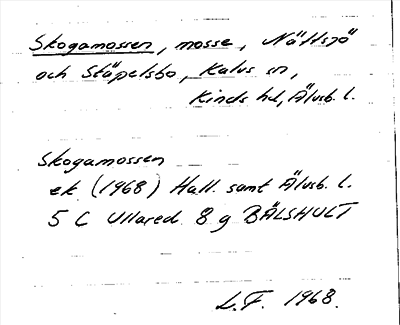 Skogamossen, mosse, Nättsjö
och Stäpelsbo, Kalvs sn,
Kinds hd, Älvsb. l.
Skogamossen
ek. (1968) Hall. samt Älvsb. l.
5 C Ullared 8 g BÄLSHULT
L.F. 1968.